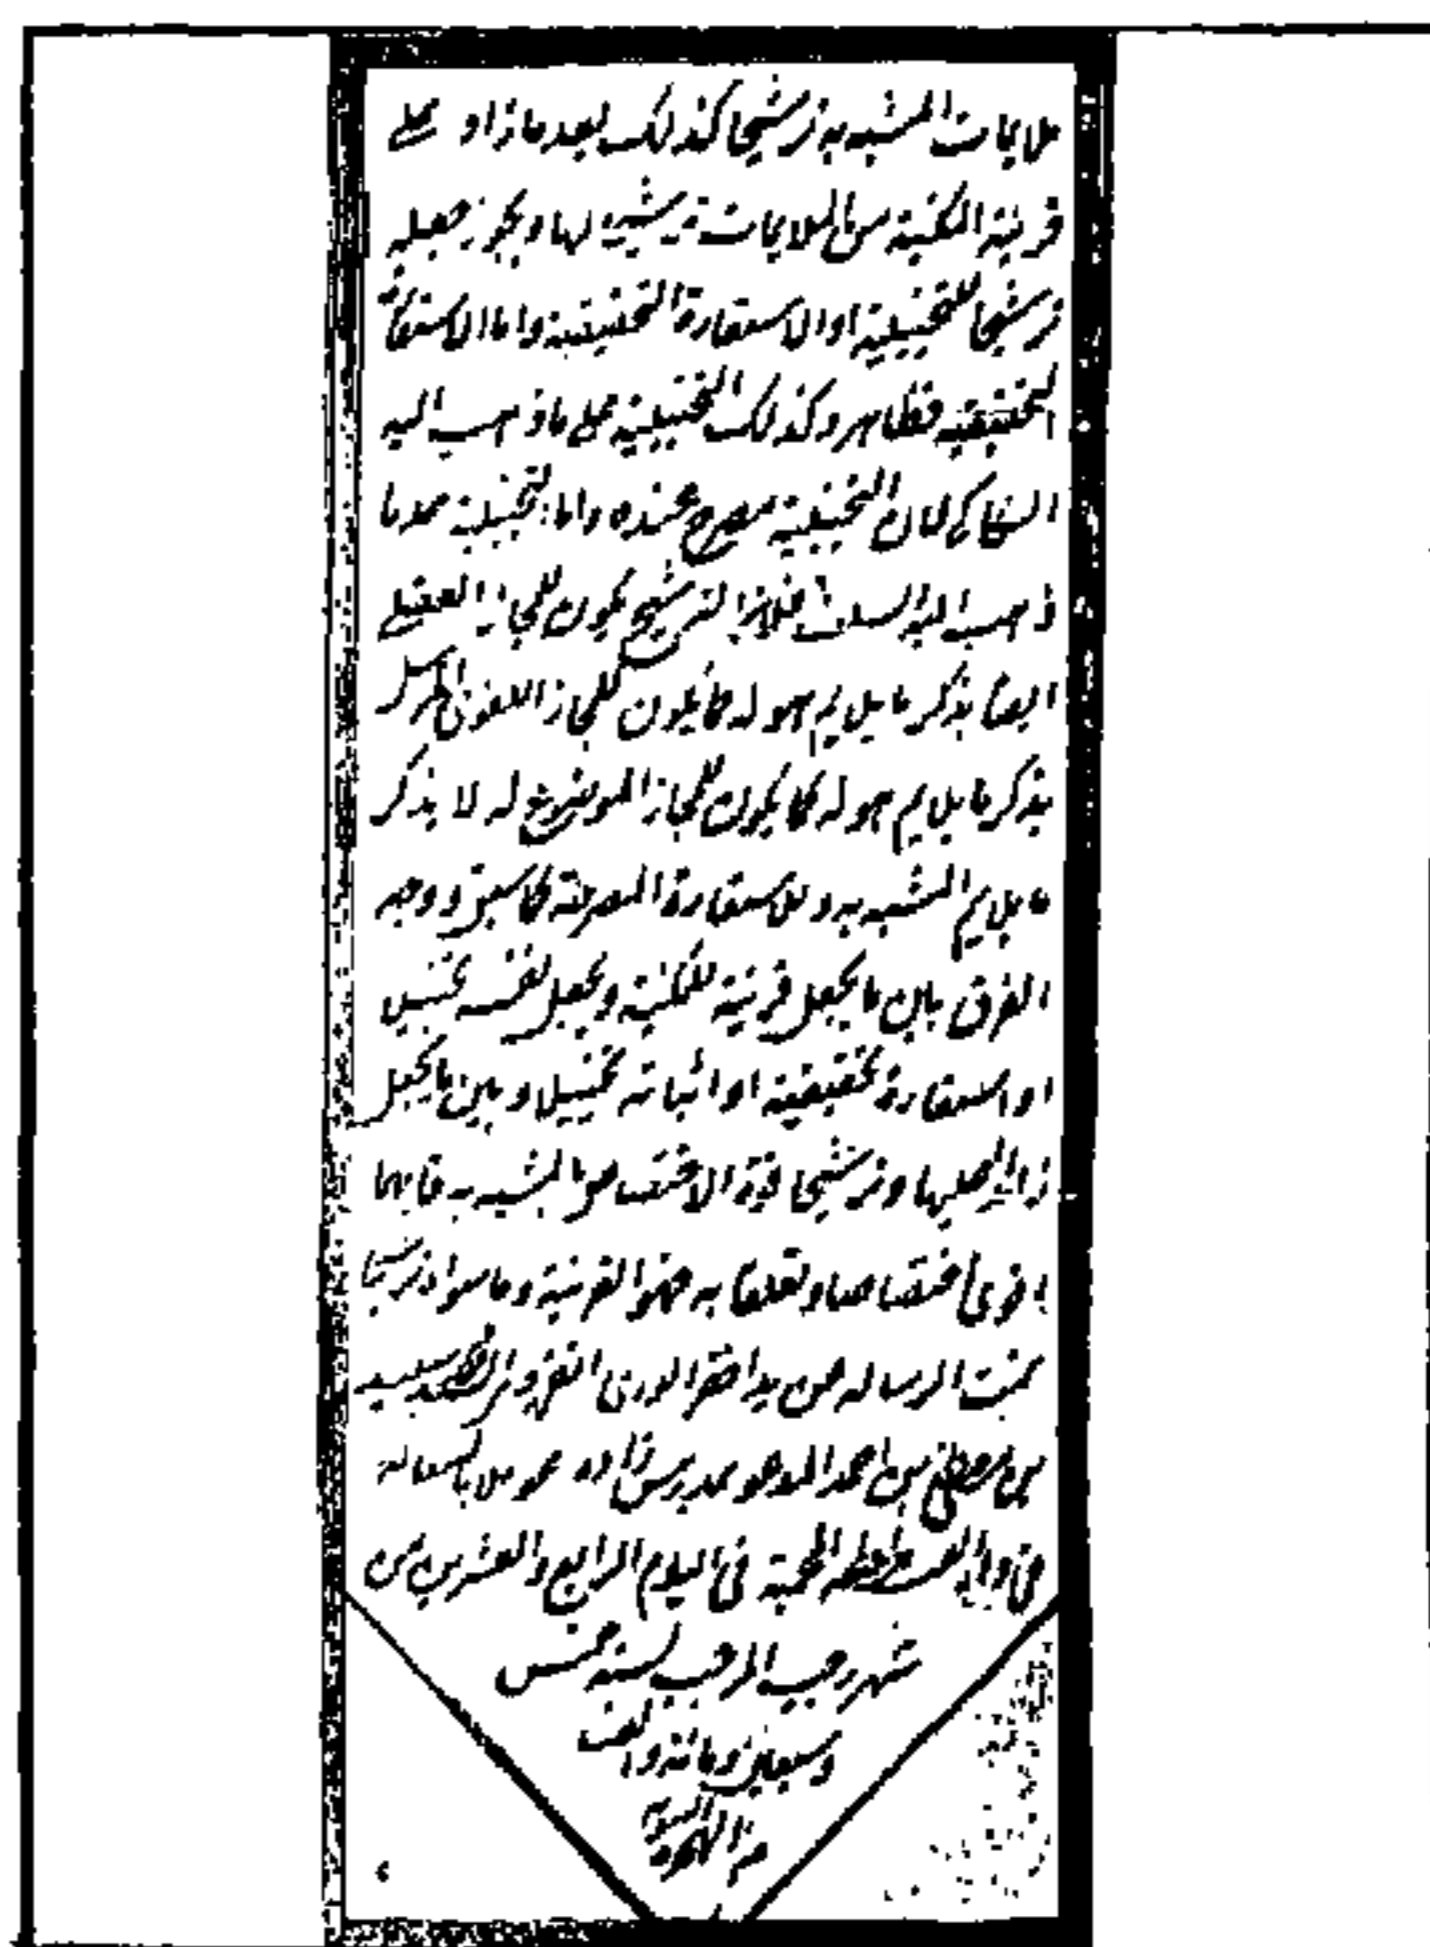 ملايمات المشبه به ترشيحا كذلك يعد ما زاد على
قرينة المكنية من الملايمات ترشيحا لها ويجوز جعله
ترشيحا للتخييلية او الاستعارة التحقيقية واما الاستعارة
التحقيقية فظاهر وكذلك التخييلية على ما ذهب اليه
السكاكي لان التخييلية مصرحة عنده واما التخييلية على ما
ذهب اليه السلف فلان الترشيح يكون للمجاز العقلي
ايضا بذكر ما يلايم هو له كما يكون للمجاز اللغوي المرسل
بذكر ما يلايم هو له كما يكون للمجاز الموضوع له لا بذكر
ما يلايم المشبه به وللاستعارة المصرحة كما سبق ووجه
الفرق بين ما يجعل قرينة للمكنية ويجعل نفسه تخييل
او استعارة تحقيقية او اثباته تخييلا وبين ما يجعل
زايدا عليها وترشيحا قوة الاختصاص بالمشبه به فايهما
اقوى اختصاصا وتعلقا به فهو القرينة وما سواه ترشيحا
تمت الرسالة من يد احقر الورى الفقير السيد
بن مصطفى بن احمد المدعو بمدرس زاده عوملا باسعاله
في القسطنطينية المحمية في اليوم الرابع والعشرين من
شهر رجب المرجب لسنة خمس
وسبعين ومائة والف
من الهجرة النبوية